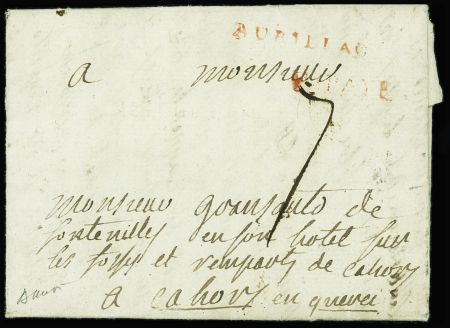 AURILLAC
a monsieur
P. PAYÉ
7
monsieur de
fontenilles en son hotel sur
les fossés et remparts de cahors
a cahors en querci